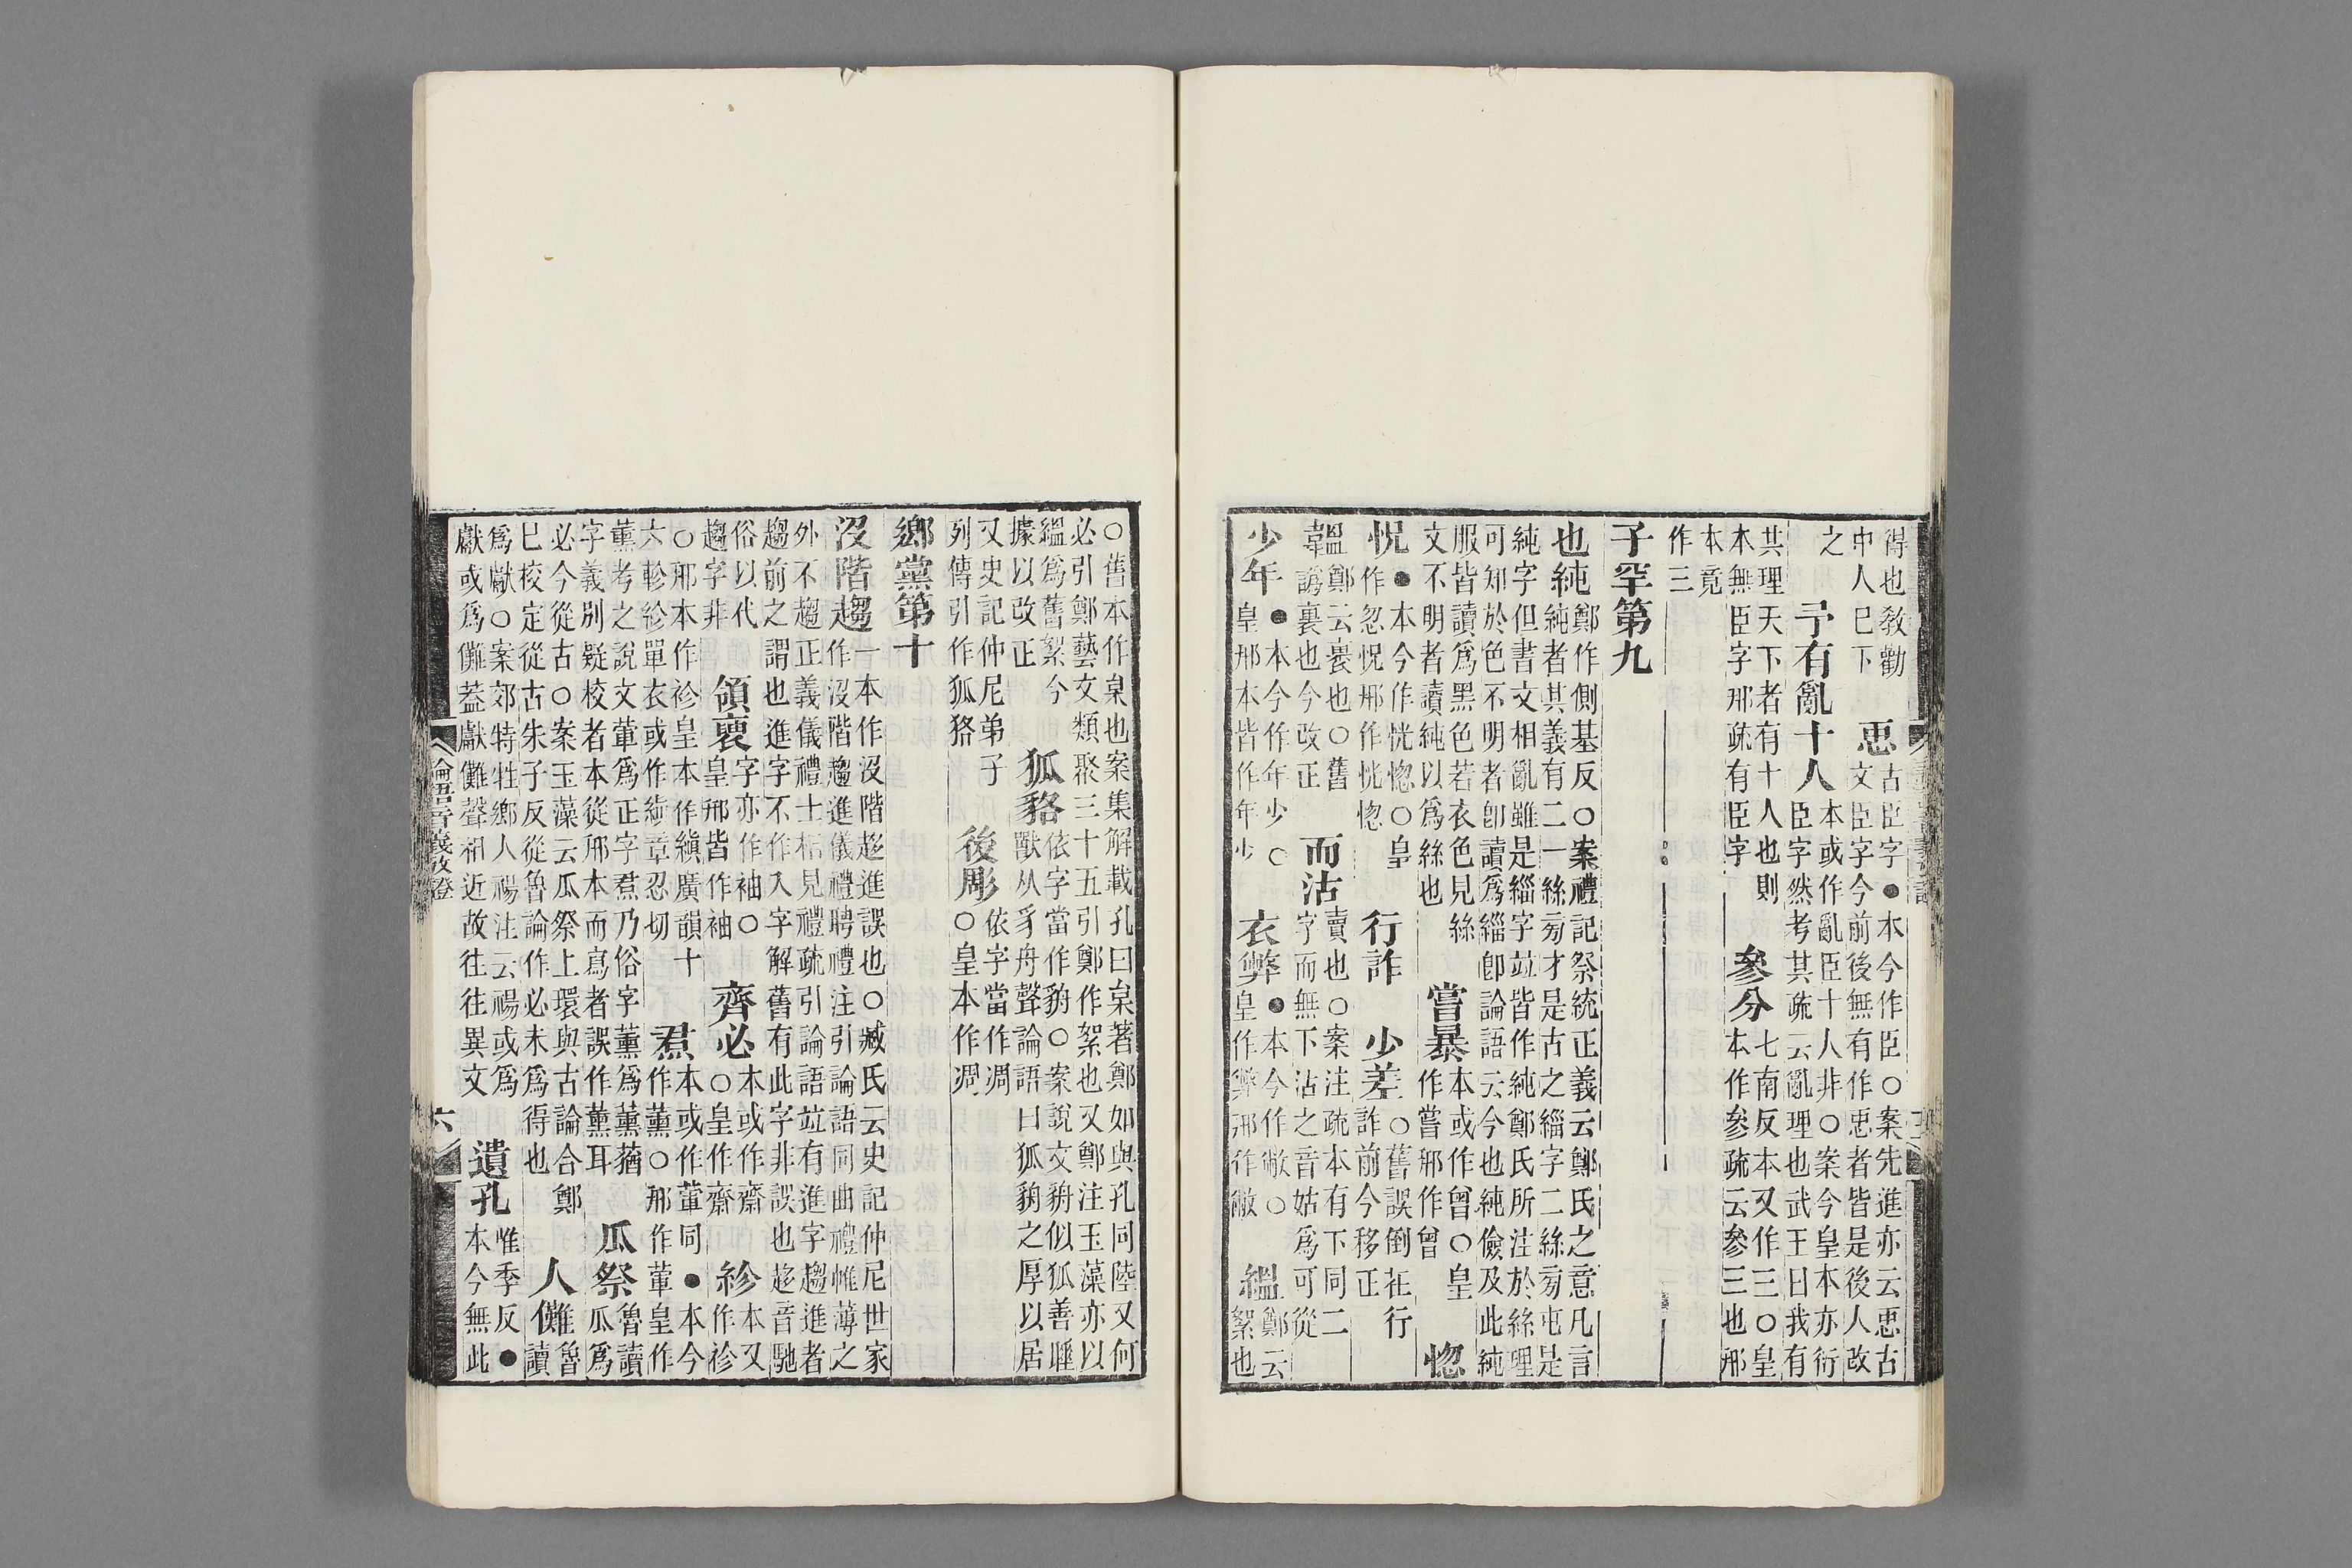 得也敎勸
中人巳下
恧
古臣字●本今作臣○案先進亦云恧古
文臣字今前後無有作恧者皆是後人改
之
予有亂十人
本或作亂臣十人非○案今皇本亦衍
臣字然考其疏云亂理也武王曰我有
其理天下者有十人也則
本無臣字邢疏有臣字
參分
七南反本又作三○皇
本作參疏云參三也邢
本竟
作三
子罕第九
也純
鄭作側基反○案禮記祭統正義云鄭氏之意凡言
純者其義有二一絲旁才是古之緇字二絲旁屯是
純字但書文相亂雖是緇字竝皆作純鄭氏所注於絲理
可知於色不明者卽讀爲緇卽論語云今也純儉及此純
服皆讀爲黑色若衣色見絲
文不明者讀純以爲絲也
嘗暴
本或作曾○皇
作嘗邢作曾
惚
怳
●本今作恍惚○皇
作忽怳邢作恍惚
行詐
少差
○舊誤倒在行
詐前今移正
韞
鄭云裹也○舊
譌裏也今改正
而沽
賣也○案注疏本有下同二
字而無下沽之音姑爲可從
少年
●本今作年少○
皇邢本皆作年少
衣弊
●本今作敝○
皇作弊邢作敝
縕
鄭云
絮也
○舊本作枲也案集解載孔曰枲著鄭如與孔同陸又何
必引鄭藝文類聚三十五引鄭作絮也又鄭注玉藻亦以
縕爲舊絮今
據以改正
狐貉
依字當作貈○案說文貈似狐善睡
獸从豸舟聲論語曰狐貈之厚以居
又史記仲尼弟子
列傳引作狐狢
後彫
依字當作凋
○皇本作凋
鄉黨第十
沒階趨
一本作沒階趍進誤也○臧氏云史記仲尼世家
作沒階趨進儀禮聘禮注引論語同曲禮帷薄之
外不趨正義儀禮士相見禮疏引論語竝有進字趨進者
趨前之謂也進字不作入字解舊有此字非誤也趍音馳
俗以代
趨字非
領褎
字亦作袖○
皇邢皆作袖
齊必
本或作齋
○皇作齋
紾
本又
作袗
○邢本作袗皇本作縝廣韻十
六軫紾單衣或作䋫章忍切
焄
本或作葷同●本今
作薰○邢作葷皇作
薰考之說文葷爲正字焄乃俗字薰爲薰蕕
字義別疑校者本從邢本而寫者誤作薰耳
瓜祭
魯讀
瓜爲
必今從古○案玉藻云瓜祭上環與古論合鄭
巳校定從古朱子反從魯論作必未爲得也
人儺
魯
讀
爲獻○案郊特牲鄉人禓注云禓或爲
獻或爲儺葢獻儺聲相近故往往異文
遺孔
唯季反●
本今無此
論語音義攷證
六